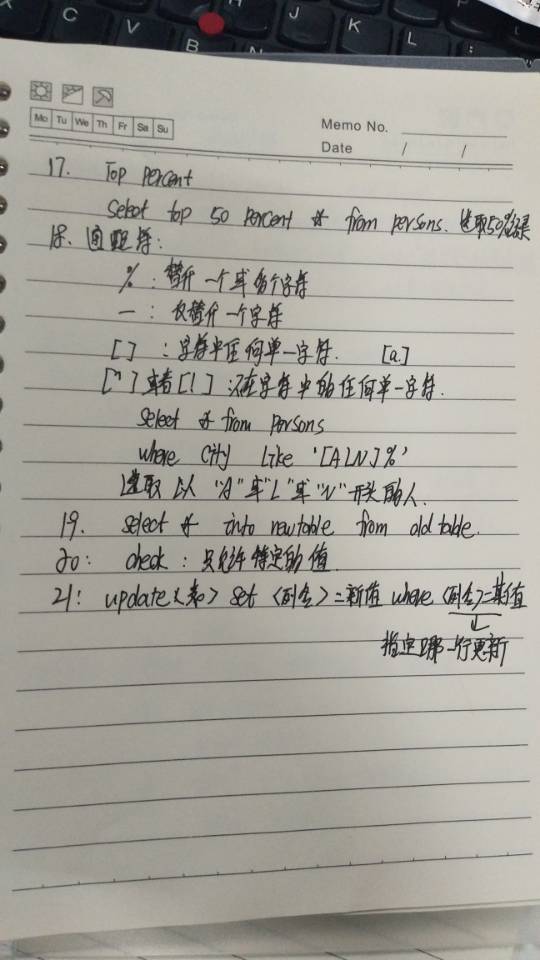 C V B N J K L
Mo Tu We Th Fr Sa Su
Memo No.
Date / /
17. Top Percent
Select top 50 percent * from persons. 选取50%记录
18. 通配符:
% : 替代一个或多个字符
— : 仅替代一个字符
[ ] : 字符中任何单一字符. [a.]
[^] 或者 [!] : 不在字符中的任何单一字符.
Select * from Persons
where City Like '[ALN]%'
选取以"A"或"L"或"N"开头的人.
19. select * into newtable from old table.
20: check : 只允许特定的值.
21: update <表> set <列名>=新值 where <列名>=某值
↓
指定哪一行更新